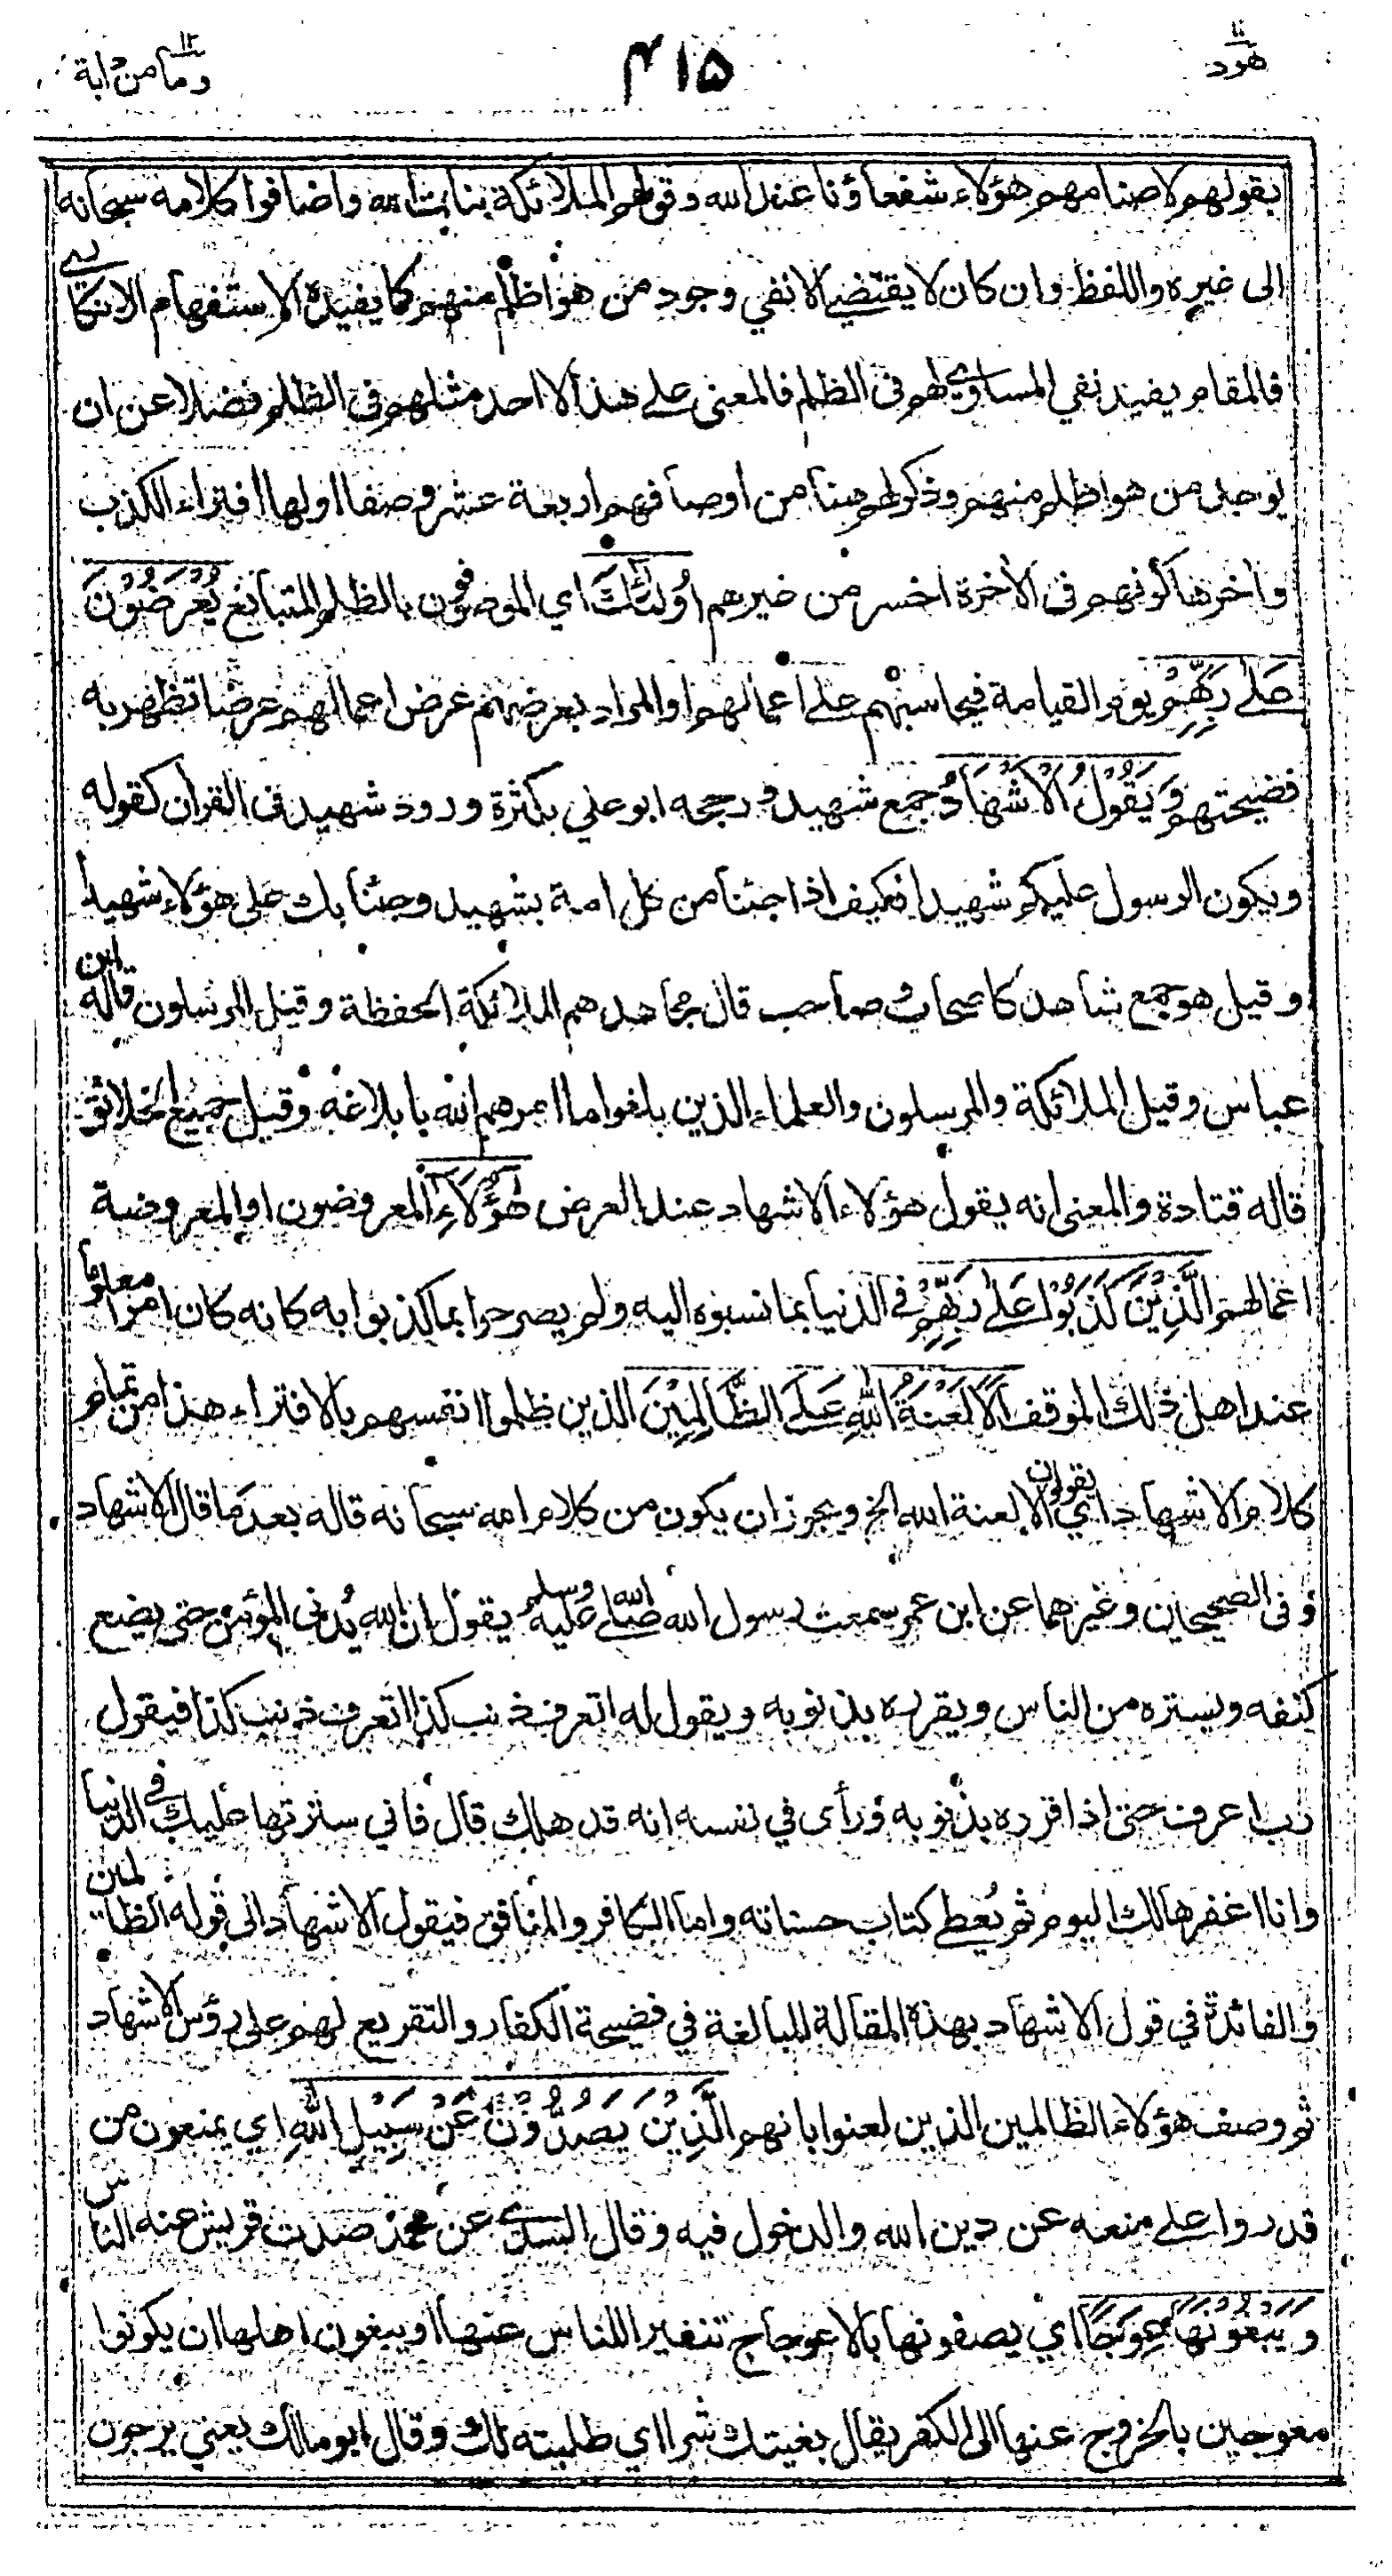 هود ١١
٤١٥
وما من دابة ١٢
بقولهم لاصنامهم هؤلاء شفعاؤنا عند الله وقولهم الملائكة بنات الله واضافوا كلامه سبحانه
الى غيره واللفظ وان كان لا يقتضي الا نفي وجود من هو اظلم منهم كما يفيده الاستفهام الانكاري
فالمقام يفيد نفي المساوي لهم في الظلم فالمعنى على هذا لا احد مثلهم في الظلم فضلا عن ان
يوجد من هو اظلم منهم وذكر لهم هنا من اوصافهم اربعة عشر وصفا اولها افتراء الكذب
واخرها كونهم في الاخرة اخسر من غيرهم اُولٰئِكَ اي الموصوفون بالظلم المتبالغ يُعْرَضُوْنَ
عَلٰى رَبِّهِمْ يوم القيامة فيحاسبهم على اعمالهم او المراد بعرضهم عرض اعمالهم عرضا تظهر به
فضيحتهم وَيَقُوْلُ الْاَشْهَادُ جمع شهيد ورجحه ابو علي بكثرة ورود شهيد في القران كقوله
ويكون الرسول عليكم شهيدا فكيف اذا جئنا من كل امة بشهيد وجئنا بك على هؤلاء شهيدا
وقيل هو جمع شاهد كاصحاب وصاحب قال مجاهد هم الملائكة الحفظة وقيل المرسلون قاله ابن
عباس وقيل الملائكة والمرسلون والعلماء الذين بلغوا ما امرهم الله بابلاغه وقيل جميع الخلائق
قاله قتادة والمعنى انه يقول هؤلاء الاشهاد عند العرض هٰؤُلَاءِ المعروضون او المعروضة
اعمالهم الَّذِيْنَ كَذَبُوْا عَلٰى رَبِّهِمْ في الدنيا بما نسبوه اليه ولم يصرحوا بما كذبوا به كانه كان امرا معلوما
عند اهل ذلك الموقف اَلَا لَعْنَةُ اللهِ عَلَى الظَّالِمِيْنَ الذين ظلموا انفسهم بالافتراء هذا من تمام
كلام الاشهاد اي يقولون الا لعنة الله الخ ويجوز ان يكون من كلام الله سبحانه قاله بعد ما قال الاشهاد
وفي الصحيحين وغيرهما عن ابن عمر سمعت رسول الله صلى الله عليه وسلم يقول ان الله يُدني المؤمن حتى يضع
كنفه ويستره من الناس ويقرره بذنوبه ويقول له اتعرف ذنب كذا اتعرف ذنب كذا فيقول
رب اعرف حتى اذا قرره بذنوبه ورأى في نفسه انه قد هلك قال فاني سترتها عليك في الدنيا
وانا اغفرها لك اليوم ثم يُعطى كتاب حسناته واما الكافر والمنافق فيقول الاشهاد الى قوله الظالمين
والفائدة في قول الاشهاد بهذه المقالة المبالغة في فضيحة الكفار والتقريع لهم على رؤس الاشهاد
ثم وصف هؤلاء الظالمين الذين لعنوا بانهم الَّذِيْنَ يَصُدُّوْنَ عَنْ سَبِيْلِ اللهِ اي يمنعون من
قدروا على منعه عن دين الله والدخول فيه وقال السدي عن محمد صدت قريش عنه الناس
وَيَبْغُوْنَهَا عِوَجًا اي يصفونها بالاعوجاج تنفيرا للناس عنها او يبغون اهلها ان يكونوا
معوجين بالخروج عنها الى الكفر يقال بغيتك شرا اي طلبته لك وقال ابو مالك يعني يرجون